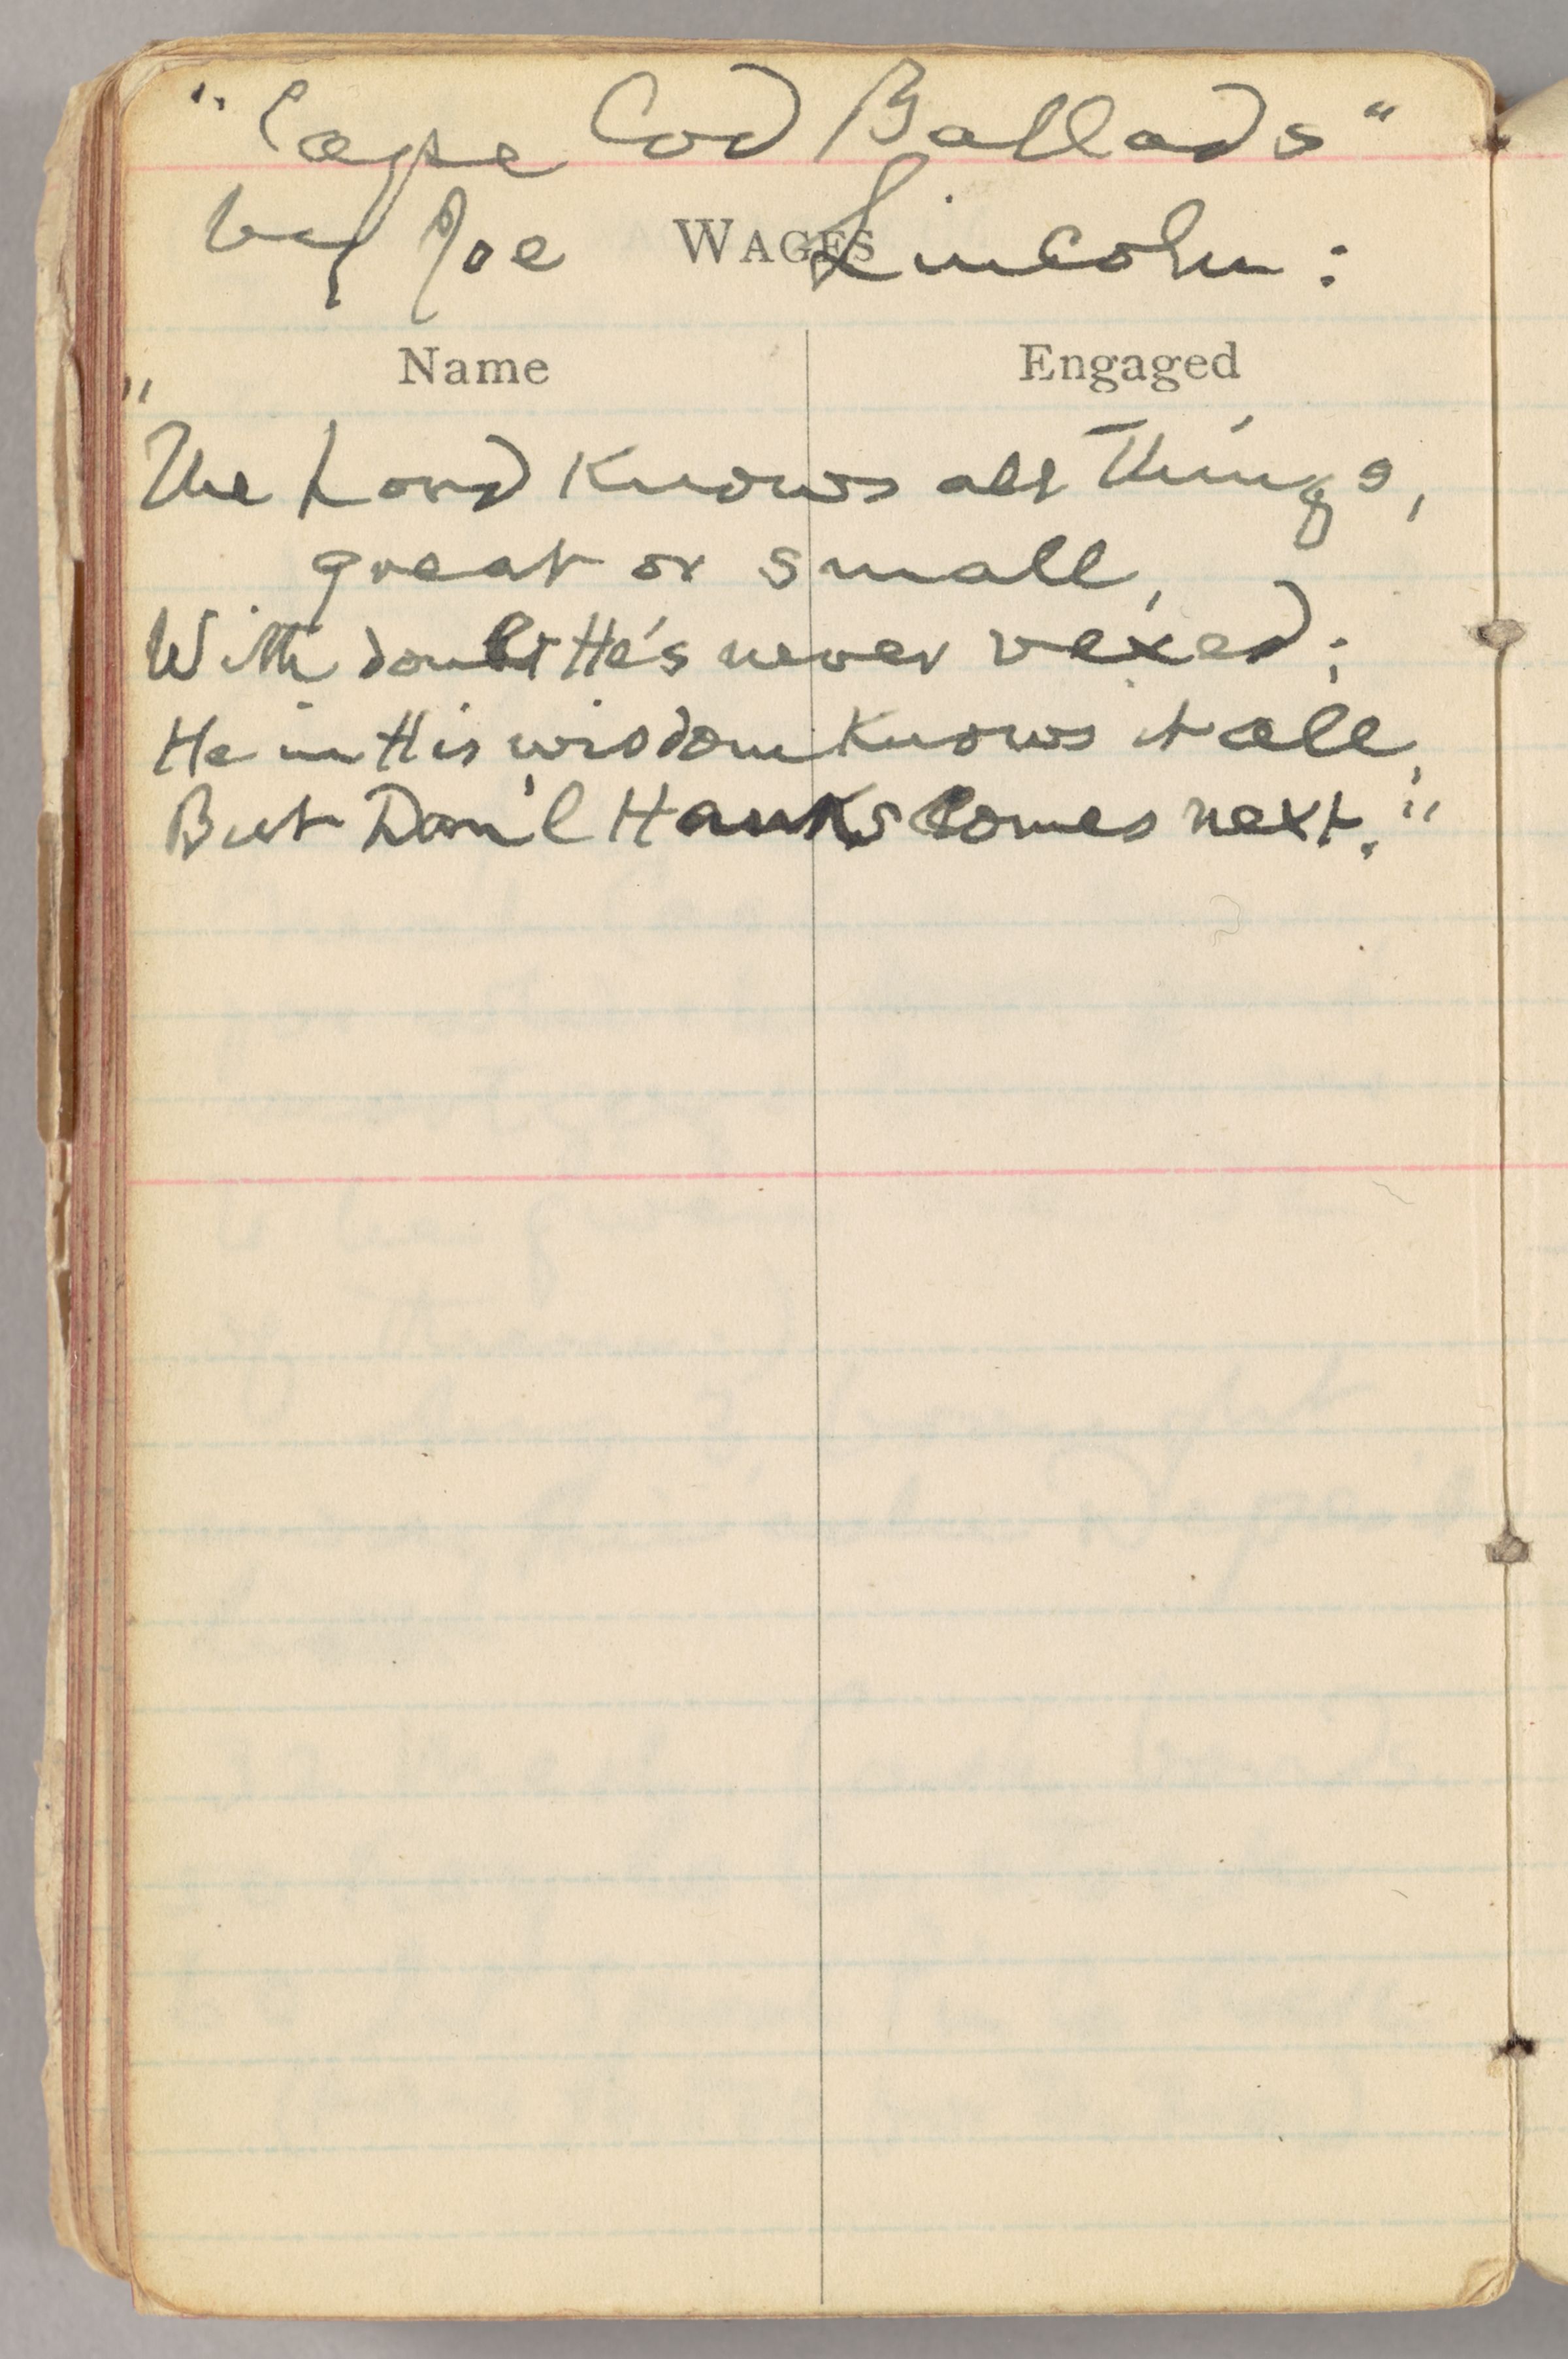 "Cape Cod Ballads"
by Joe Lincoln:
WAGES
Name Engaged
"
The Lord Knows all Things,
great or small,
With doubt He's never vexed;
He in His wisdom Knows it all,
But Dan'l Hanks comes next."